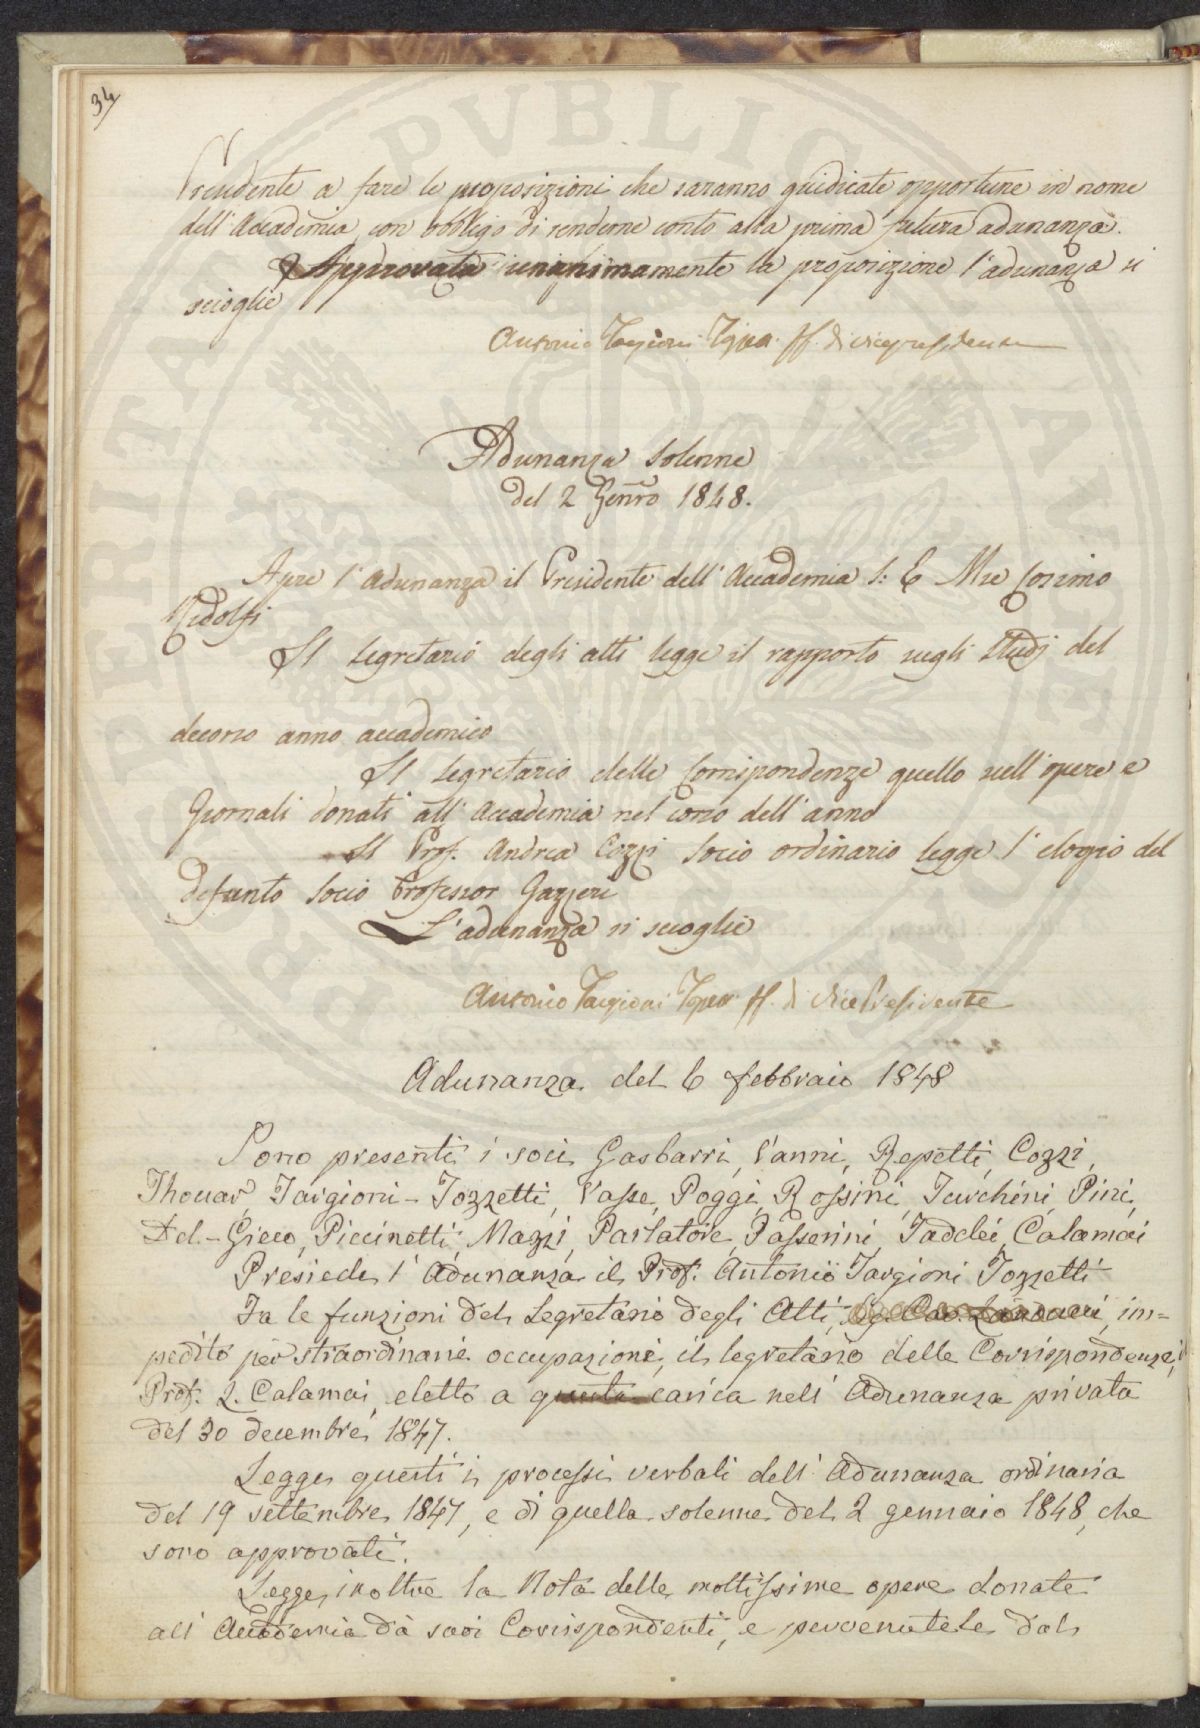 34
Presidente a fare le proposizioni che saranno giudicate opportune in nome
dell'Accademia, con obbligo di renderne conto alla prima futura adunanza.
Approvata unanimamente la proposizione l'adunanza si
scioglie
Antonio Targioni Tozzetti ff. di vicepresidente
Adunanza Solenne
del 2 Genro 1848.
Apre l'adunanza il Presidente dell'Accademia S: E Mse Cosimo
Ridolfi
Il Segretario degli atti legge il rapporto sugli Studj del
decorso anno accademico
Il Segretario delle Corrispondenze quello sull'opere e
Giornali donati all'Accademia nel corso dell'anno
Il Prof. Andrea Cozzi Socio ordinario legge l'elogio del
defunto Socio Professor Gazzeri
L'adunanza si scioglie
Antonio Targioni Tozzetti ff. di Vice Presidente
Adunanza del 6 febbraio 1848
Sono presenti i soci Gasbarri, Vanni, Repetti, Cozzi,
Thouar, Targioni-Tozzetti, Vasse, Poggi, Rossini, Turchini, Pini,
Del-Greco, Piccinetti, Mazzi, Parlatore, Passerini, Taddei, Calamai
Presiede l'Adunanza il Prof. Antonio Targioni Tozzetti
Fa le funzioni del Segretario degli Atti, im-
pedito per straordinarie occupazioni, il segretario delle Corrispondenze,
Prof. L. Calamai, eletto a questa carica nell'Adunanza privata
del 30 decembre 1847.
Legge questi i processi verbali dell'Adunanza ordinaria
del 19 settembre 1847, e di quella solenne del 2 gennaio 1848, che
sono approvati.
Legge inoltre la Nota delle moltissime opere donate
all'Accademia da suoi Corrispondenti, e pervenutele dal
PVBLICA
PROSPERITA